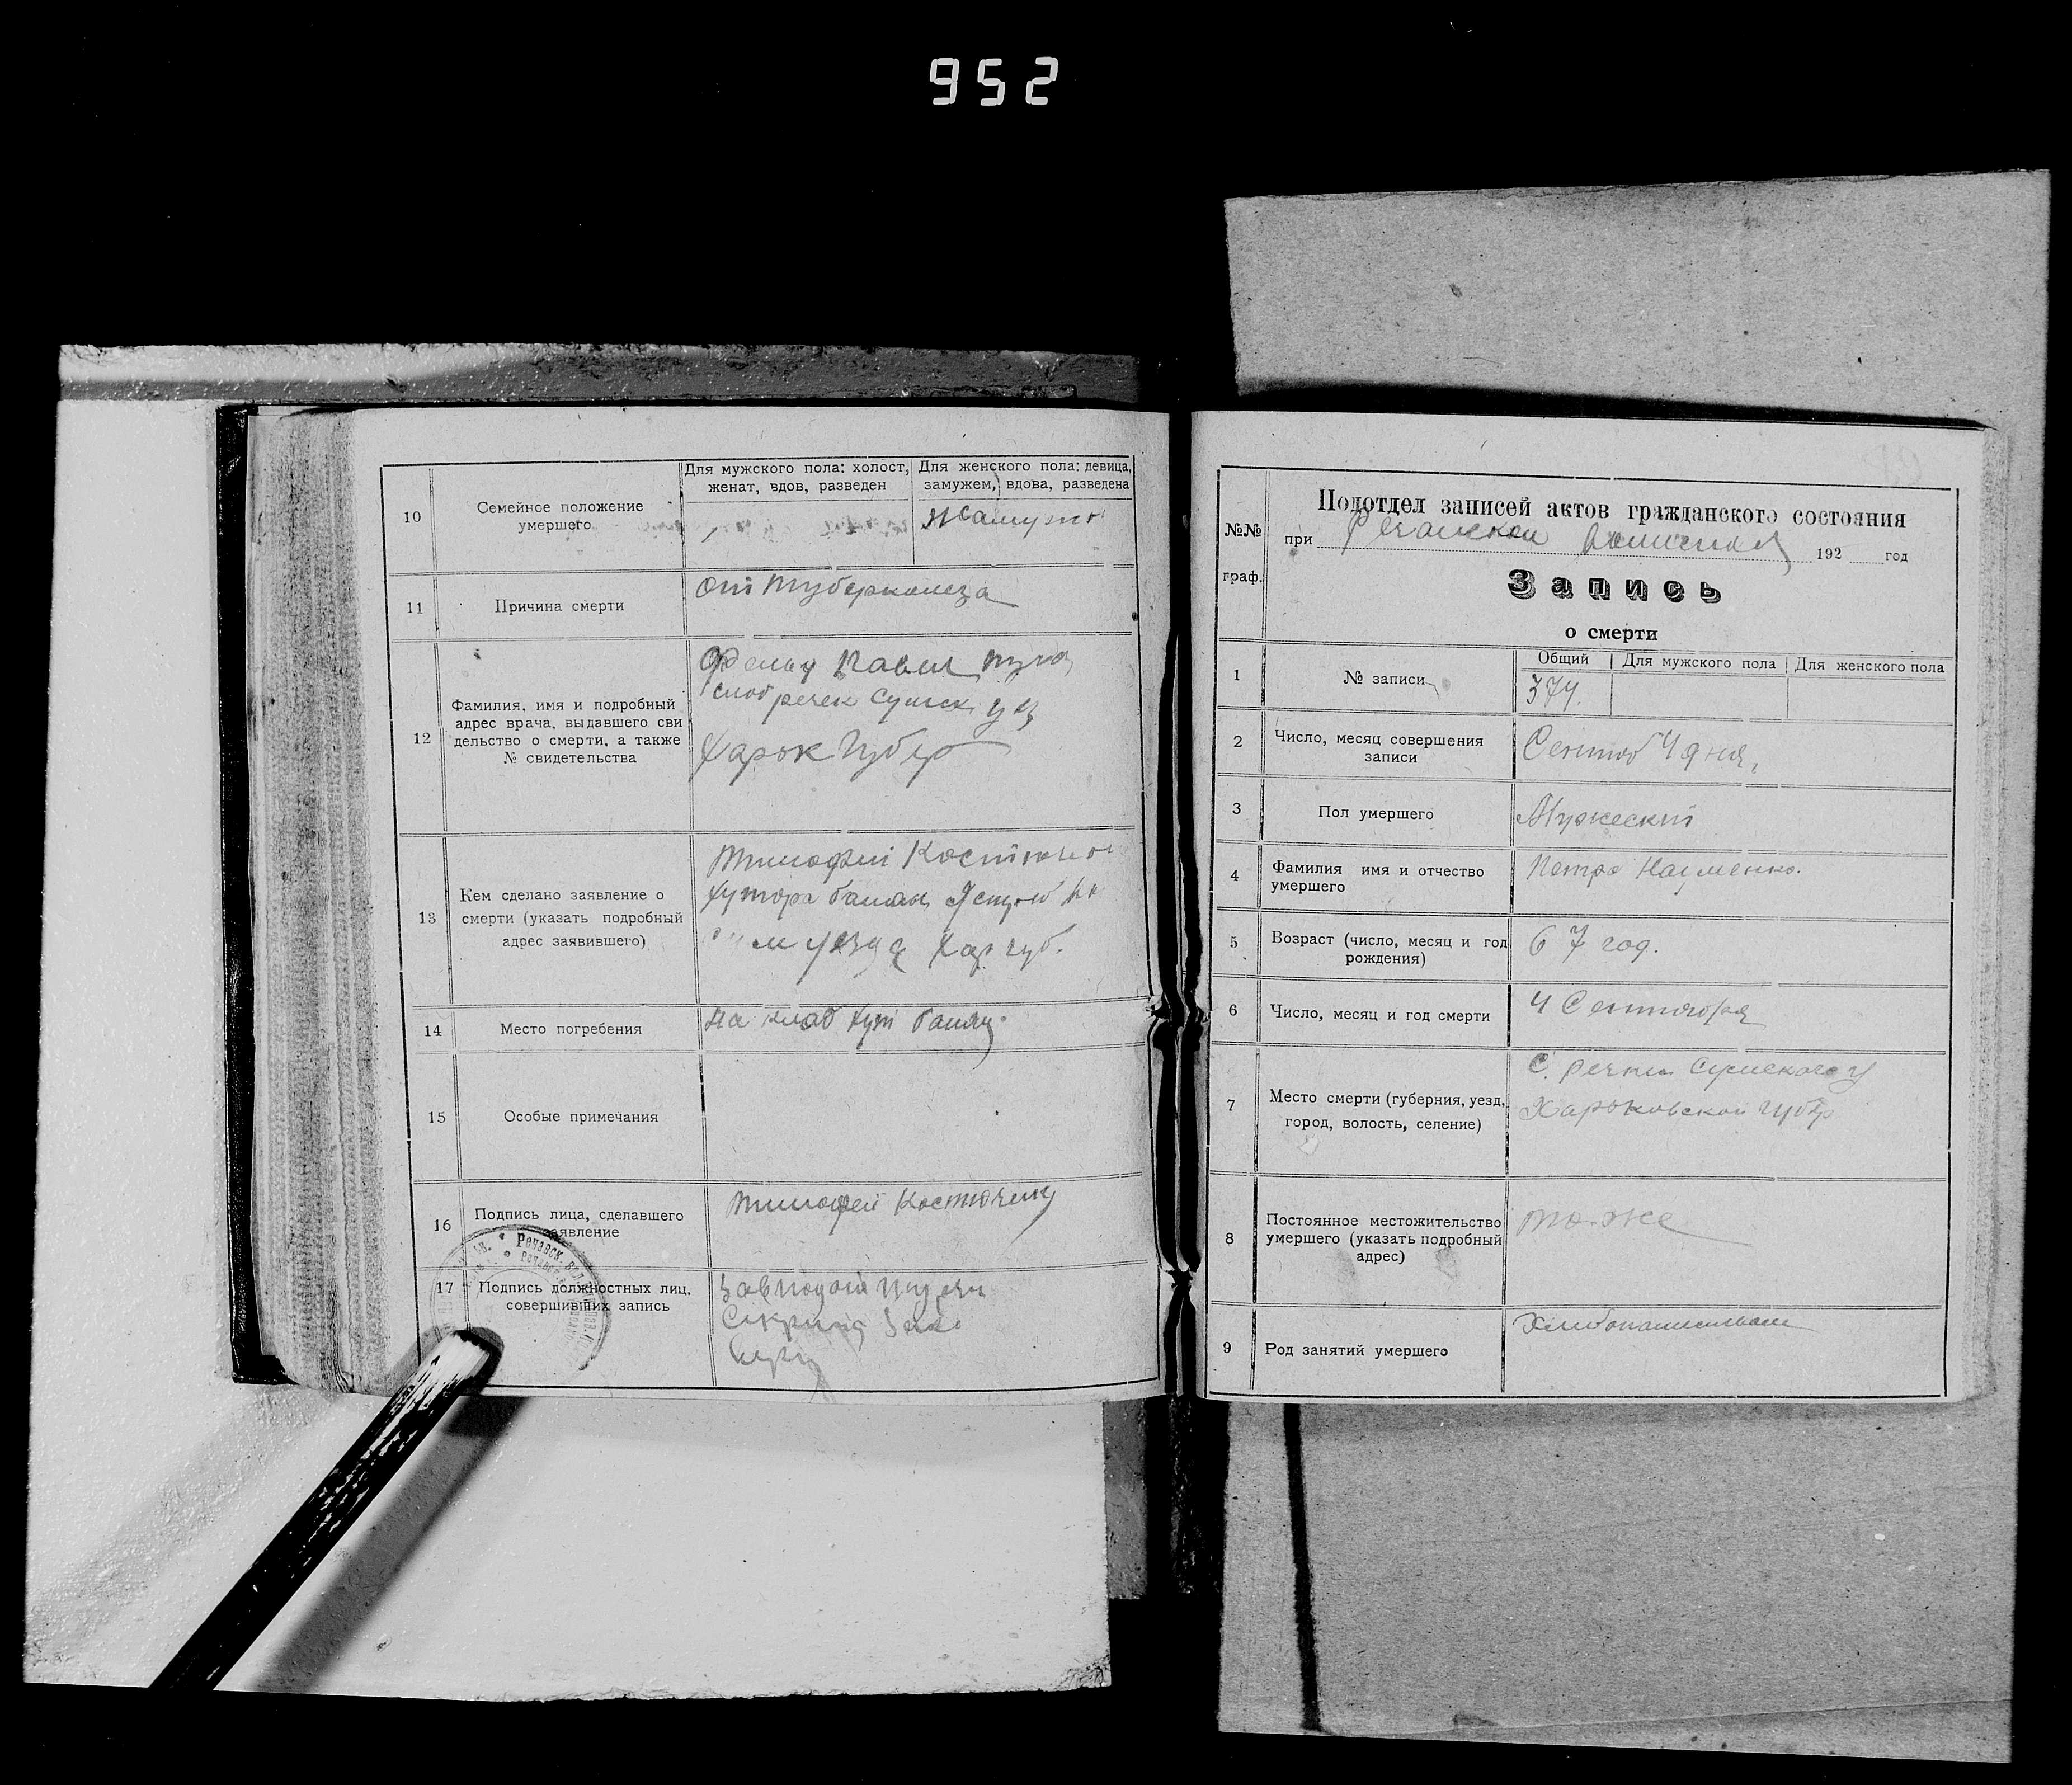 952
10
Семейное положение
умершего
Для мужского пола: холост,
женат, вдов, разведен
Для женского пола: девица,
замужем, вдова, разведена
11
Причина смерти
От туберколеза
12
Фамилия, имя и подробный
адрес врача, выдавшего сви
дельство о смерти, а также
№ свидетельства
Павел
слоб речек Сумск уез
Харьк Губер
13
Кем сделано заявление о
смерти (указать подробный
адрес заявившего)
Тимофей Костючен
хутора
уезда Хар губ.
14
Место погребения
На клад хут
15
Особые примечания
16
Подпись лица, сделавшего
заявление
Тимофей Костюченку
17
Подпись должностных лиц,
совершивших запись
№№
граф.
Подотдел записей актов гражданского состояния
при 192 год
Запись
о смерти
1
№ записи
Общий
Для мужского пола
Для женского пола
374.
2
Число, месяц совершения
записи
Сентяб 4 дня,
3
Пол умершего
Мужеский
4
Фамилия имя и отчество
умершего
Петро Науменко.
5
Возраст (число, месяц и год
рождения)
67 год.
6
Число, месяц и год смерти
4 Сентября
7
Место смерти (губерния, уезд,
город, волость, селение)
С. речки Сумского у
Харьковской губер
8
Постоянное местожительство
умершего (указать подробный
адрес)
то-же
9
Род занятий умершего